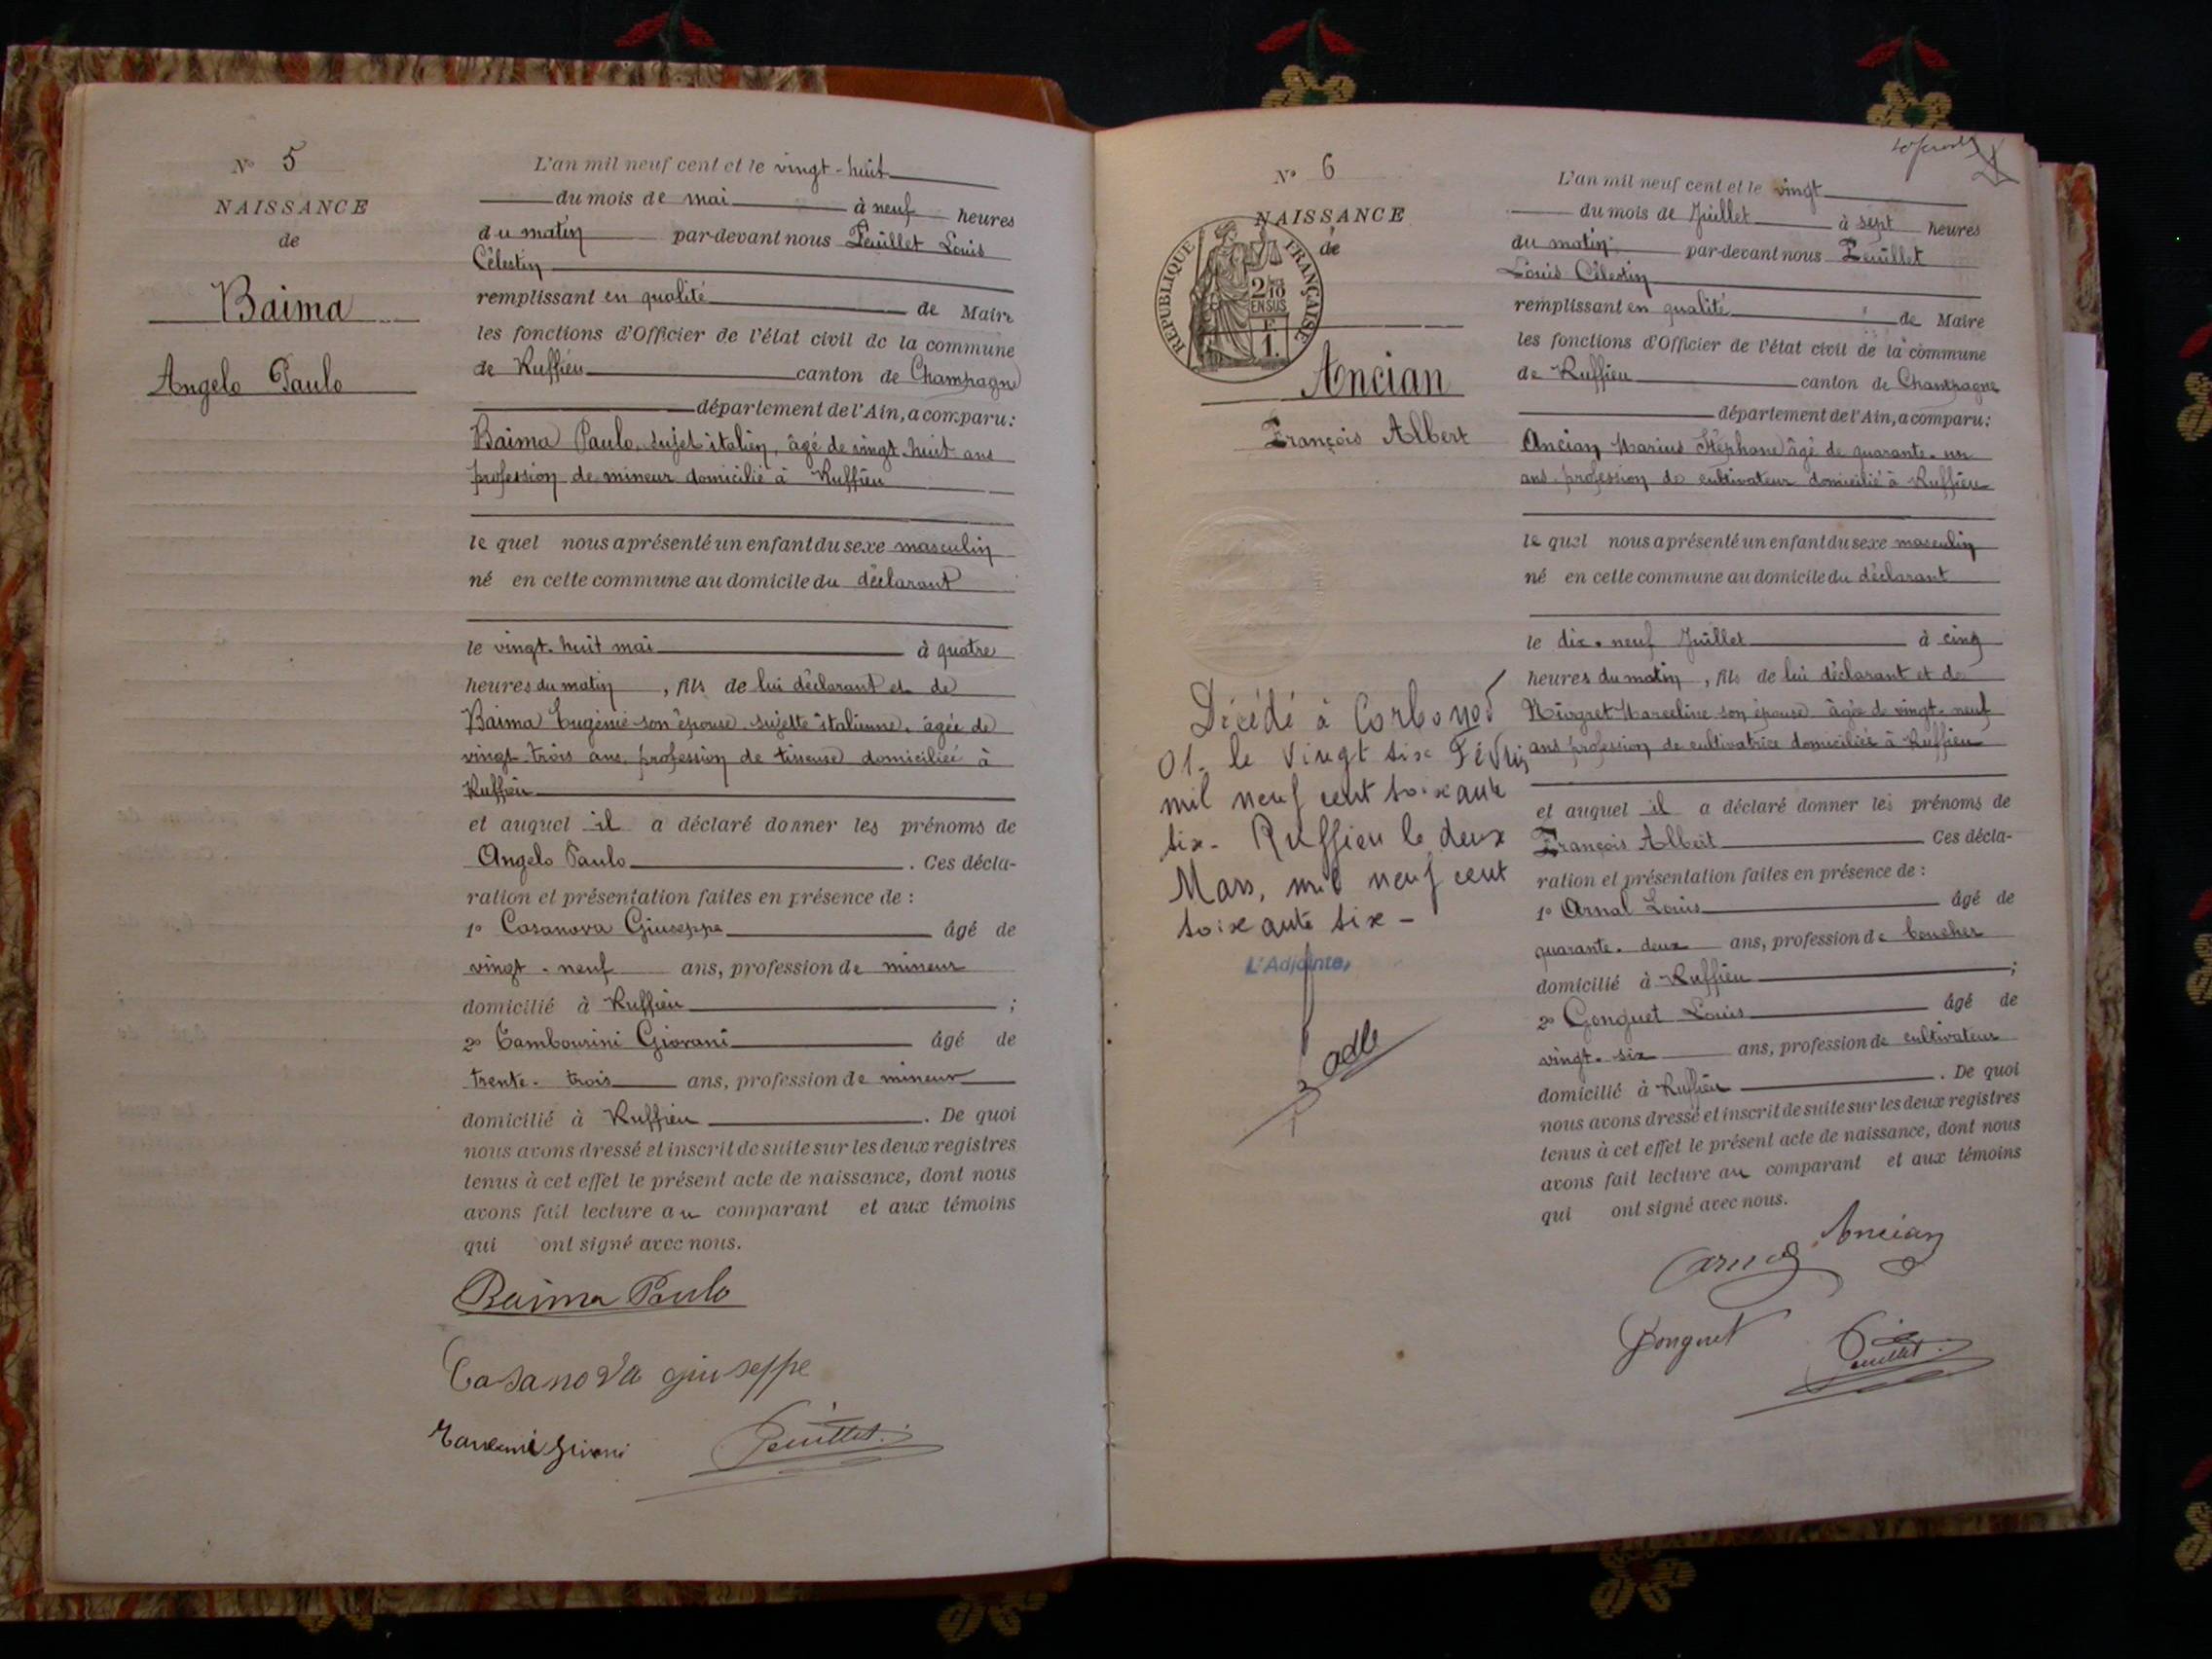 N° 5
NAISSANCE
de
Baima
Angelo Paulo
L'an mil neuf cent et le vingt-huit
du mois de mai à neuf heures
du matin par-devant nous Peuillet Louis
Célestin
remplissant en qualité de Maire
les fonctions d'Officier de l'état civil de la commune
de Ruffieu canton de Champagne
département de l'Ain, a comparu:
Baima Paulo, sujet italien, âgé de vingt-huit ans
profession de mineur domicilié à Ruffieu
le quel nous a présenté un enfant du sexe masculin
né en cette commune au domicile du déclarant
le vingt-huit mai à quatre
heures du matin, fils de lui déclarant et de
Baima Eugénie son épouse, sujette italienne, âgée de
vingt-trois ans, profession de tisseuse domiciliée à
Ruffieu
et auquel il a déclaré donner les prénoms de
Angelo Paulo. Ces décla-
ration et présentation faites en présence de :
1° Casanova Giuseppe âgé de
vingt-neuf ans, profession de mineur
domicilié à Ruffieu ;
2° Tambourini Giovani âgé de
trente-trois ans, profession de mineur
domicilié à Ruffieu. De quoi
nous avons dressé et inscrit de suite sur les deux registres
tenus à cet effet le présent acte de naissance, dont nous
avons fait lecture au comparant et aux témoins
qui ont signé avec nous.
Baima Paulo
Casanova giuseppe
Peuillet
N° 6
NAISSANCE
de
RÉPUBLIQUE FRANÇAISE
2/10
EN SUS
F
1.
Ancian
François Albert
Décédé à Corbonod
01. le Vingt six Février
mil neuf cent soixante
six - Ruffieu le deux
Mars, mil neuf cent
soixante six -
L'Adjointe,
L'an mil neuf cent et le vingt
du mois de Juillet à sept heures
du matin par-devant nous Peuillet
Louis Célestin
remplissant en qualité de Maire
les fonctions d'Officier de l'état civil de la commune
de Ruffieu canton de Champagne
département de l'Ain, a comparu:
Ancian Marius Stéphane âgé de quarante-un
ans, profession de cultivateur domicilié à Ruffieu
le quel nous a présenté un enfant du sexe masculin
né en cette commune au domicile du déclarant
le dix-neuf Juillet à cinq
heures du matin, fils de lui déclarant et de
Niogret Marceline son épouse âgée de vingt-neuf
ans profession de cultivatrice domiciliée à Ruffieu
et auquel il a déclaré donner les prénoms de
François Albert Ces décla-
ration et présentation faites en présence de :
1° Arnal Louis âgé de
quarante-deux ans, profession de boucher
domicilié à Ruffieu ;
2° Gonguet Louis âgé de
vingt-six ans, profession de cultivateur
domicilié à Ruffieu. De quoi
nous avons dressé et inscrit de suite sur les deux registres
tenus à cet effet le présent acte de naissance, dont nous
avons fait lecture au comparant et aux témoins
qui ont signé avec nous.
Ancian
Arnal
Gonguet
Peuillet